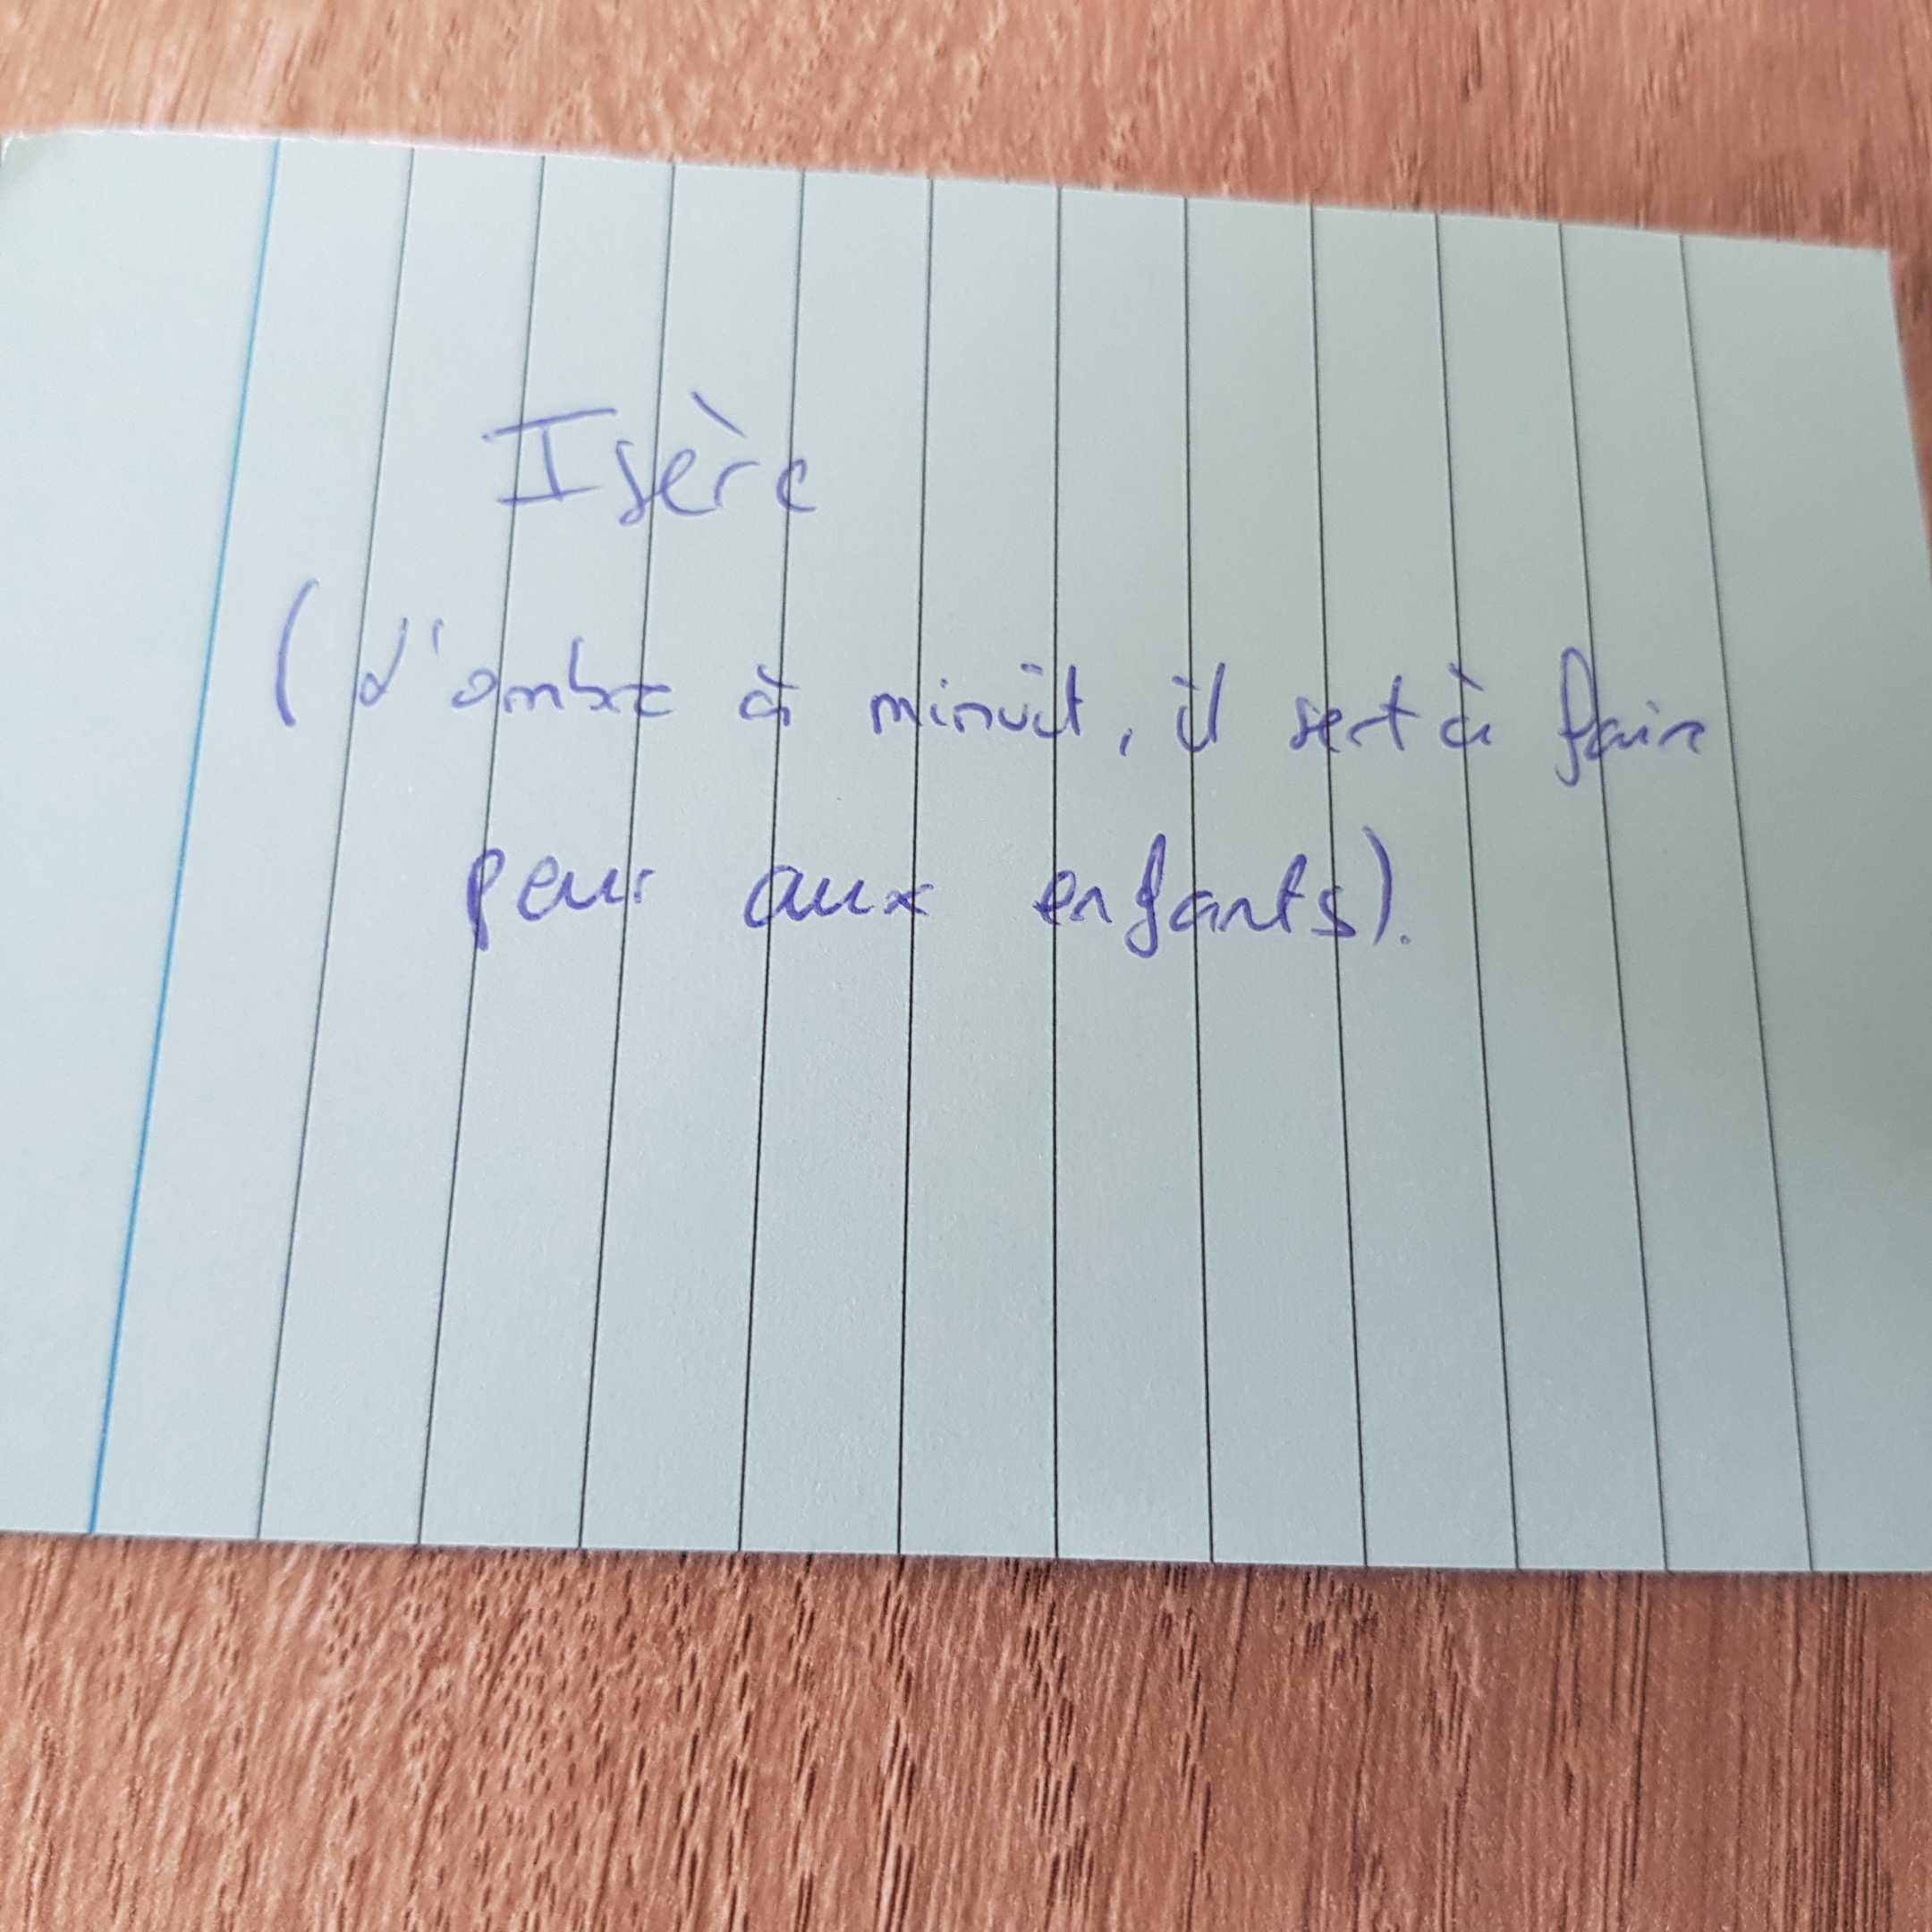 Isère
(d'ombre à minuit, il sert à faire
peur aux enfants).